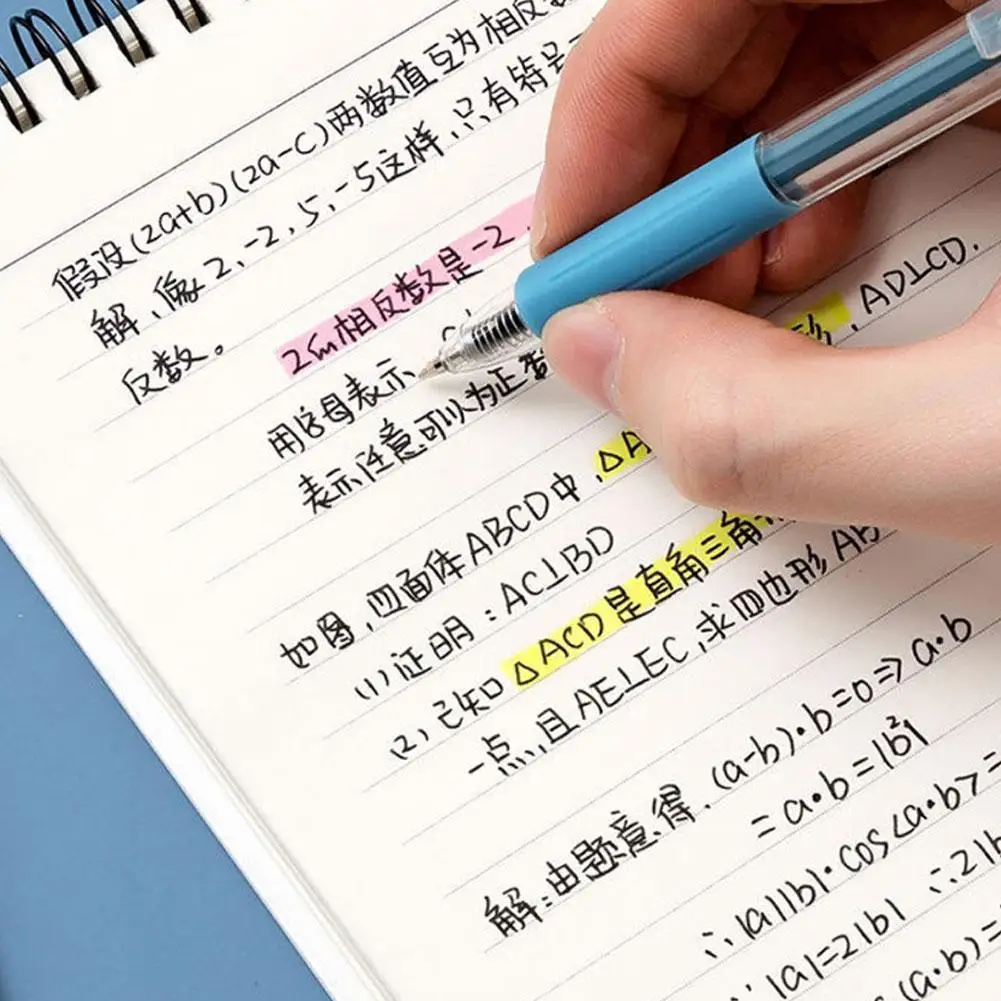 假设(2a+b)(2a-c)两数值互为相反数
解,像2,-2,5,-5这样,只有符号
反数。
2的相反数是-2
用字母表示
表示任意可以为正数
如图,四面体ABCD中,△A 形,AD⊥CD.
(1)证明:AC⊥BD
(2),已知△ACD是直角三角形
一点,且AE⊥EC,求四边形AB
解:由题意得,(a-b)·b=0⇒a·b
=a·b=|b²|
∴|a||b|·cos<a·b>=
∵|a|=2|b| ∴2|b
(a·b)=